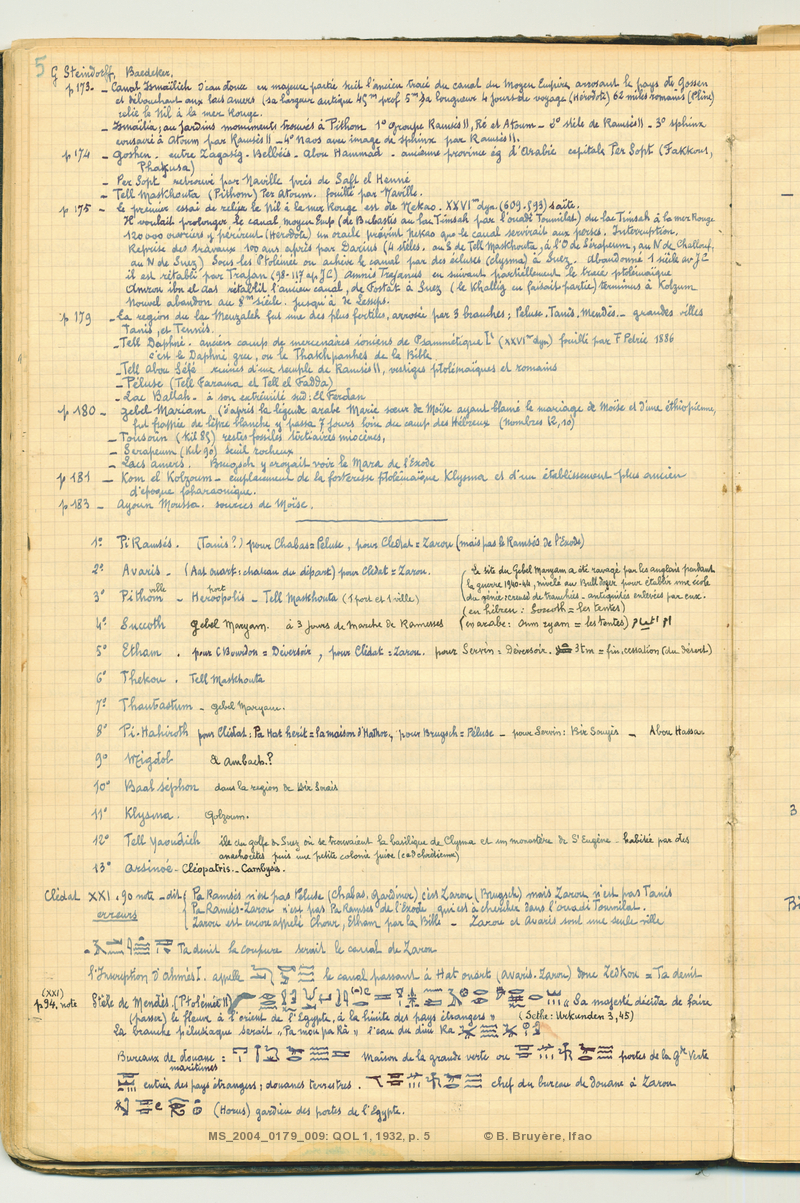 5 G Steindorff, Baedeker.
p 173. - Canal Ismaïlieh d'eau douce en majeure partie suit l'ancien tracé du canal du Moyen Empire, arrosant le pays de Gossen
et débouchant aux lacs amers (sa largeur antique 45m prof 5m sa longueur 4 jours de voyage (Hérodote) 62 milles romains (Pline)
relie le Nil à la mer Rouge.
- Ismaïlia, au jardins monuments trouvés à Pithom 1° groupe Ramsès II, Ré et Atoum - 2° stèle de Ramsès II - 3° sphinx
consacré à Atoum par Ramsès II - 4° Naos avec image de sphinx par Ramsès II.
p 174 - Goshen. entre Zagazig - Belbéis - Abou Hammad. - ancienne province ég d'Arabie capitale Per Sopt (Fakkous,
Phakusa)
- Per Sopt retrouvé par Naville près de Saft el Henné
- Tell Maskhouta (Pithom) Per Atoum. fouillé par Naville.
p 175 - le premier essai de relier le Nil à la mer Rouge est de Nekao. XXVIme dyn. (609-593) saïte.
Il voulait prolonger le canal moyen Emp (de Bubastis au lac Timsah par l'ouadi Toumilat) du lac Timsah à la mer Rouge
120 000 ouvriers y périrent (Hérodote) un oracle prévint Nekao que le canal servirait aux perses. Interruption.
Reprise des travaux 100 ans après par Darius (4 stèles. au S de Tell Maskhouta, à l'O de Sérapeum, au N de Challouf,
au N de Suez) Sous les Ptolémée on achève le canal par des écluses (Clysma) à Suez. abandonné 1 siècle av JC
il est rétabli par Trajan (98-117 ap. JC) Amnis Trajanus en suivant partiellement le tracé ptolémaïque
Amrou ibn el Aas rétablit l'ancien canal, de Fostât à Suez (le Khallig en faisait partie) terminus à Kolzum
Nouvel abandon au 8me siècle jusqu'à de Lesseps.
p 179 - La région du lac Menzaleh fut une des plus fertiles, arrosée par 3 branches; Péluse, Tanis, Mendès. - grandes villes
Tanis, et Tennis.
- Tell Daphné. ancien camp de mercenaires ioniens de Psammétique I (XXVIme dyn) fouillé par F Petrie 1886
c'est le Daphné grec, ou le Thakhpanhes de la Bible
- Tell Abou Séfé ruines d'un temple de Ramsès II, vestiges ptolémaïques et romains
- Péluse (Tell Farama et Tell el Fadda)
- Lac Ballah - à son extrémité sud: El Ferdan
p 180 - Gebel Mariam (d'après la légende arabe Marie sœur de Moïse ayant blamé le mariage de Moïse et d'une éthiopienne,
fut frappée de lèpre blanche y passa 7 jours loin du camp des Hébreux (Nombres 12, 10)
- Tousoun (Kil 85) restes fossiles tertiaires miocènes,
- Serapeum (Kil 90) seuil rocheux
- Lacs amers. Brugsch y croyait voir le Mara de l'Exode
p 181 - Kom el Kolzoum - emplacement de la forteresse ptolémaïque Klysma et d'un établissement plus ancien
d'époque pharaonique.
p 183 - Ayoun Moussa. sources de Moïse.
1° Pi Ramsès. (Tanis?) pour Chabas = Péluse, pour Clédat = Zarou (mais pas le Ramsès de l'Exode)
2° Avaris - (Aat ouart: chateau du départ) pour Clédat = Zarou.
le site du Gebel Maryam a été ravagé par les anglais pendant
la guerre 1940-44, nivelé au Bulldozer pour établir une école
du génie creusé de tranchés. antiquités enlevées par eux.
3° Pithom ville - Héroöpolis port - Tell Maskhouta (1 port et 1 ville)
(en hébreu: Soccoth = les tentes)
4° Succoth Gebel Maryam. à 3 jours de marche de Ramesses (en arabe: Oum ryam = les tentes)
5° Etham. pour C Bourdon = Déversoir, pour Clédat = Zarou. pour Servin = Déversoir. 3tm = fin, cessation (du désert)
6° Thekou. Tell Maskhouta
7° Thaubastum - Gebel Maryam.
8° Pi-Hahiroth pour Clédat: Pa Hat herit = la maison d'Hathor, pour Brugsch = Péluse - pour Servin: Bir Souyis - Abou Hassa.
9° Migdol El Ambach.?
10° Baal séphon dans la région de Bir Souis
11° Klysma. Qolzoum.
12° Tell Yaoudieh île du golfe de Suez où se trouvaient la basilique de Clysma et un monastère de St Eugène. habitée par des
anachorètes puis une petite colonie juive (càd chrétienne)
13° Arsinoé - Cléopatris - Cambysis.
Clédat XXI. 90 note - dit Pa Ramsès n'est pas Péluse (Chabas, Gardiner) c'est Zarou (Brugsch) mais Zarou n'est pas Tanis
erreurs Pa Ramsès-Zarou n'est pas Pa Ramsès de l'Exode qui est à chercher dans l'ouadi Toumilat.
Zarou est encore appelé Chour, Etham par la Bible - Zarou et Avaris sont une seule ville
Ta denit la coupure serait le canal de Zarou
l'Inscription d'Ahmès I. appelle le canal passant à Hat ouart (Avaris-Zarou) donc Zedkou = Ta denit
(XXI)
p. 94, note Stèle de Mendès (Ptolémée II) « Sa majesté décida de faire
(passer) le fleuve à l'orient de l'Egypte, à la limite des pays étrangers » (Sethe: Urkunden 3, 45)
La branche pélusiaque serait "Pa mou pa Râ" l'eau du dieu Ra
Bureaux de douane: maritimes Maison de la grande verte ou portes de la Gde Verte
entrée des pays étrangers; douanes terrestres. chef du bureau de douane à Zarou
(Horus) gardien des portes de l'Egypte.
MS_2004_0179_009: QOL 1, 1932, p. 5 © B. Bruyère, Ifao